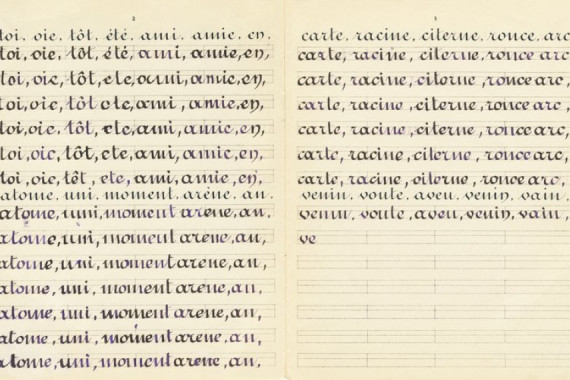 2
toi. oie. tôt. été. ami. amie. en.
toi, oie, tôt, été, ami, amie, en,
toi, oie, tôt, ete, ami, amie, en,
toi, oie, tôt, ete, ami, amie, en,
toi, oie, tôt, ete, ami, amie, en,
toi, oie, tôt, ete, ami, amie, en.
toi, oie, tôt, ete, ami, amie, en,
atome. uni. moment. arène. an.
atome, uni, moment arene, an,
atome, uni, moment arene, an,
atome, uni, moment arene, an,
atome, uni, moment arene, an,
atome, uni, moment arene, an,
atome, uni, moment arene, an,
atome, uni, moment arene, an,
3
carte. racine. citerne. ronce. arc
carte, racine, citerne, ronce arc,
carte, racine, citerne, ronce arc,
carte, racine, citerne, ronce arc,
carte, racine, citerne, ronce arc,
carte, racine, citerne, ronce arc,
carte, racine, citerne, ronce arc,
venin. voute. aveu. venin. vain.
venin, voute, aveu, venin, vain,
ve